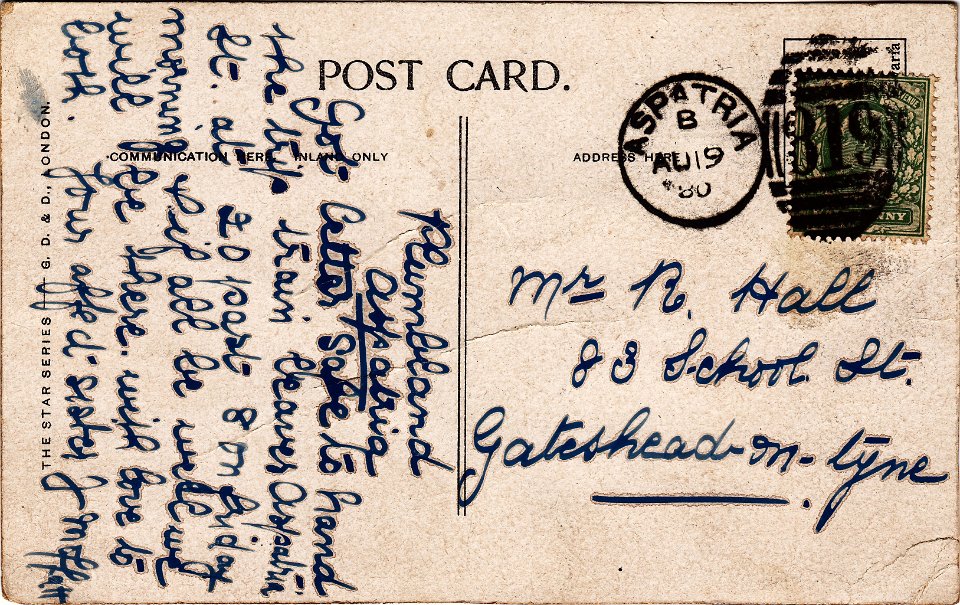 POST CARD.
COMMUNICATION HERE. INLAND ONLY
ADDRESS HERE.
THE STAR SERIES G. D. & D., LONDON.
ASPATRIA
B
AU 19
80
819
NNY
Mr R. Hall
83 School St.
Gateshead-on-Tyne
Plumbland
Aspatria
Got Letter Safe to hand
the trip train leaves Aspatria
St. at 20 past 8 on Friday
morning if all be well we
will be there. with love to
both. Your affed sister J Moffatt